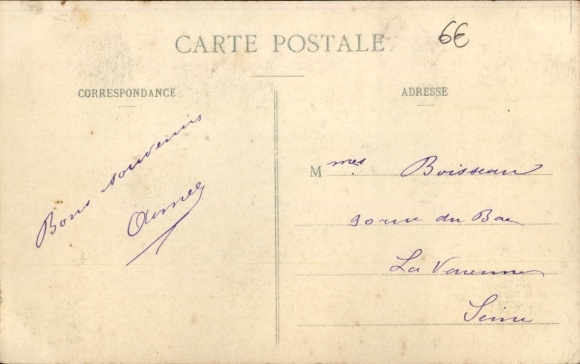 CARTE POSTALE
6€
CORRESPONDANCE
ADRESSE
Bons souvenirs
Aimée
Mmes Boisseau
30 rue du Bac
La Varenne
Seine